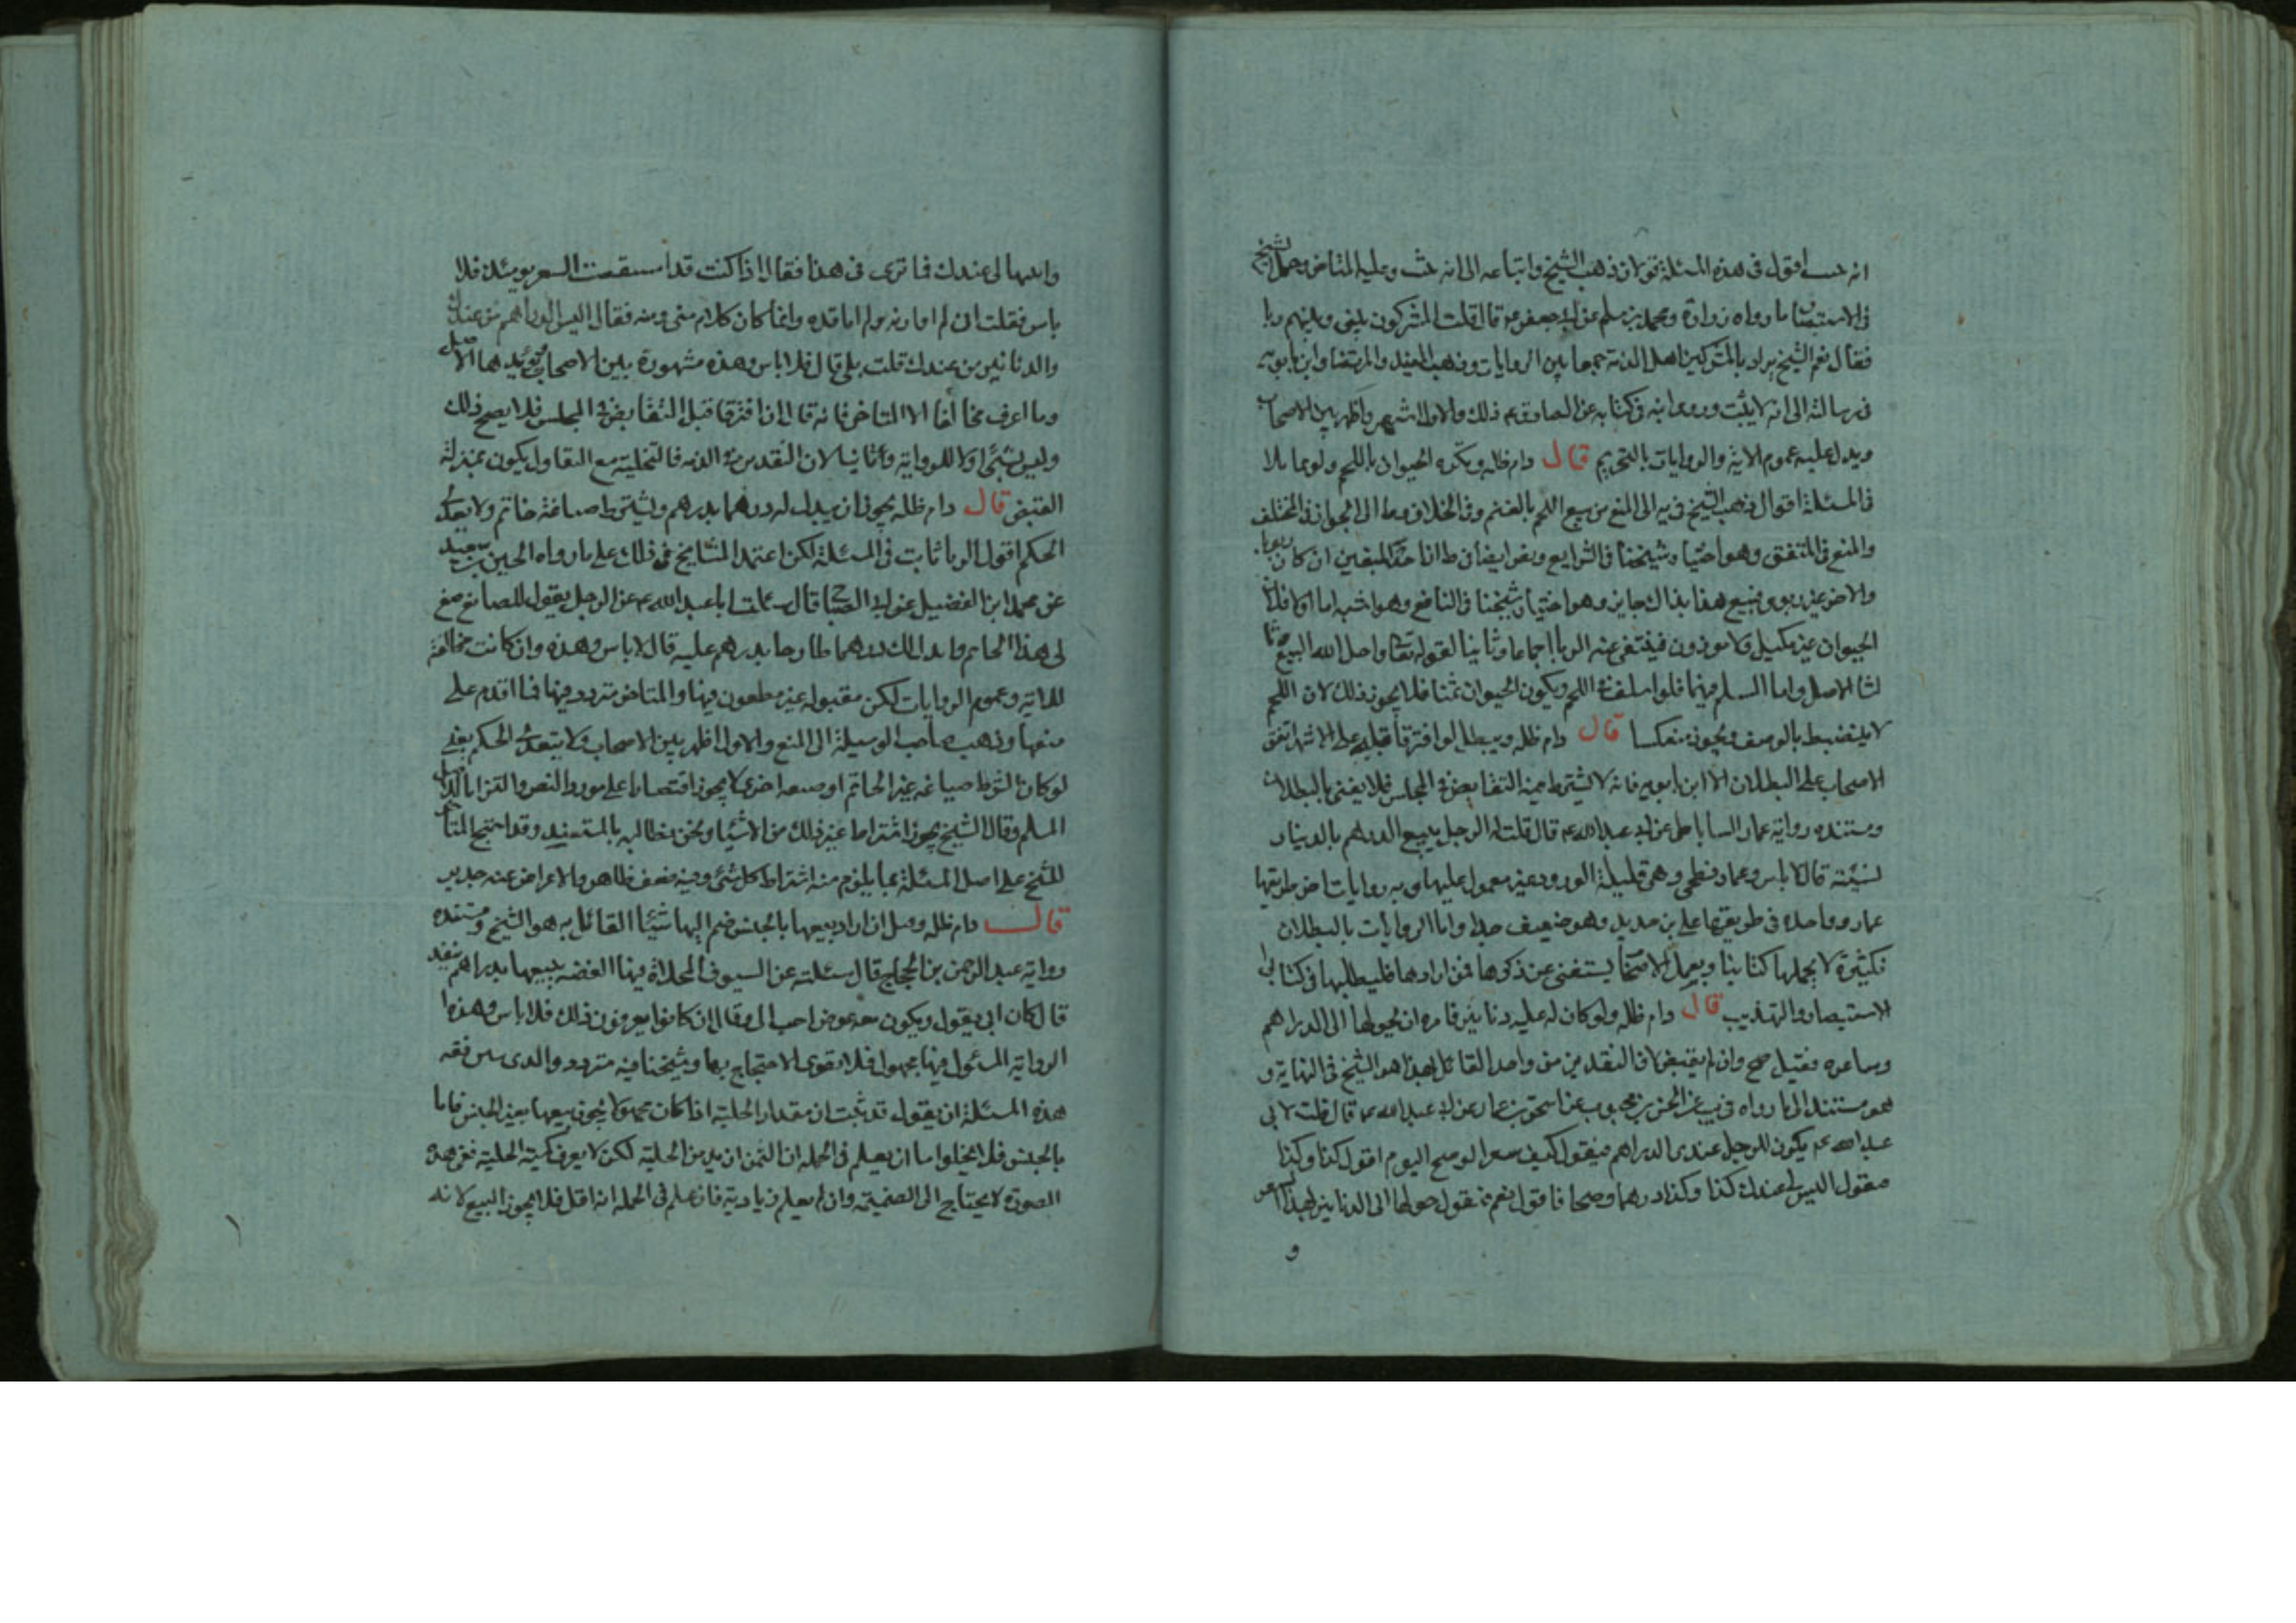 انه حسـ اقول فى هذه المسئلة قولان ذهب الشيخ واتباعه الى انه يثبت وعليه المتاخر وحمل الشيخ
فى الاستبصار ما رواه زرارة ومحمد بن مسلم عن ابى جعفر عه قال قلت المشركون بينى وبينهم ربا
فقال نعم الشيخ يراد بالمشركين اهل الذمة جمعا بين الروايات وذهب المفيد والمرتضى وابن بابويه
فى رسالته الى انه لا يثبت وروى ابنه فى كتابه عن الصادق عه ذلك والاول اشهر واظهر بين الاصحاب
ويدل عليه عموم الاية والروايات بالتحريم قال دام ظله ويكره الحيوان باللحم ولو تماثلا
فى المسئلة اقوال ذهب الشيخ فى يه الى المنع من بيع اللحم بالغنم وفى الخلاف وط الى الجواز فى المختلف
والمنع فى المتفق وهو اختيار شيخنا فى الشرايع وبعض ايضا فى ط اذا احد المبيعين ان كان ربويا
والاخر غير ربوى فبيع هذا بذاك جايز وهو اختيار شيخنا فى النافع وهو اشبه اما اولا فلان
الحيوان غير مكيل ولا موزون فينتفى عنه الربا اجماعا وثانيا لقوله تعا واحل الله البيع وثا
لثا الاصل واما السلم فيهما فلو اسلف فى اللحم ويكون الحيوان ثمنا فلا يجوز ذلك لان اللحم
لا ينضبط بالوصف ويجوز منعكسا قال دام ظله ويبطل لو افترقا قبله على الاشهر اتفق
الاصحاب على البطلان الا ابن بابويه فانه لا يشترط فيه التقابض فى المجلس فلا يفتى بالبطلان
ومستنده رواية عمار الساباطى عن ابى عبد الله عه قال قلت له الرجل يبيع الدراهم بالدينار
نسيئة قال لا باس وعمار فطحى وهى قليلة الورود غير معمول عليها وبه روايات اخر طريقها
عمار وواحدة فى طريقها على بن حديد وهو ضعيف جدا واما الروايات بالبطلان
فكثيرة لا يحملها كتابنا وبعمل الاصحاب يستغنى عن ذكرها فمن ارادها فليطلبها فى كتابى
الاستبصار والتهذيب قال دام ظله ولو كان له عليه دنانير فامره ان يحولها الى الدراهم
وساعره فقبل صح وان لم يقبض لان النقدين من واحد القائل بهذا هو الشيخ فى النهاية و
هو مستند الى ما رواه فى يب عن الحسن بن محبوب عن اسحق بن عمار عن ابى عبد الله عه قال قلت لابى
عبد الله عه يكون للرجل عندى الدراهم فيقول كيف سعر الوضح اليوم اقول كذا وكذا
فيقول اليس لى عندك كذا وكذا درهما وضحا فاقول نعم فيقول حولها الى الدنانير بهذا السعر
و
واثبتها لى عندك فما ترى فى هذا فقال اذا كنت قد استقصيت السعر يومئذ فلا
باس فقلت انى لم اوازنه ولم اناقده وانما كان كلام منى ومنه فقال اليس الدراهم من عندك
والدنانير من عندك قلت بلى قال فلا باس وهذه مشهورة بين الاصحاب مؤيدها الاصل
وما اعرف مخالفا الا المتاخر فانه قال ان افترقا قبل التقابض فى المجلس فلا يصح ذلك
وليس بشئ اولا للرواية وثانيا لان النقدين من الذمة فالتخلية مع التقاول يكون بمنزلة
القبض قال دام ظله يجوز ان يبدل له درهما بدرهم ويشترط صياغة خاتم ولا يتعدى
الحكم اقول الربا ثابت فى المسئلة لكن اعتمد المشايخ فى ذلك على ما رواه الحسين بن سعيد
عن محمد ابن الفضيل عن ابى الصباح قال سالت ابا عبد الله عه عن الرجل يقول للصايغ صغ
لى هذا الخاتم وابدل لك درهما طازجا بدرهم عليه قال لا باس وهذه وان كانت مخالفة
للاية وعموم الروايات لكن مقبولة غير مطعون فيها والمتاخر متردد فيها فما اقدم على
منعها وذهب صاحب الوسيلة الى المنع والاول اظهر بين الاصحاب ولا يتعدى الحكم يعنى
لو كان الشرط صياغة غير الخاتم او صنعة اخرى لا يجوز اقتصارا على مورد النص والتزاما لدليل
المسلم وقال الشيخ يجوز اشتراط غير ذلك من الاشياء ونحن نطالبه بالمستند وقد احتج المتاخر
للشيخ على اصل المسئلة بما يلزم منه اشتراط كل شئ وفيه ضعف ظاهر والاعراض عنه جدير
قال دام ظله وقيل ان اراد بيعها بالجنس ضم اليها شيئا القائل به هو الشيخ ومستنده
رواية عبد الرحمن بن الحجاج قال سئلته عن السيوف المحلاة فيها الفضة نبيعها بدراهم بنقد
قال كان ابى يقول ويكون معه عوض احب الى وقال ان كانوا يعرفون ذلك فلا باس وهذه
الرواية المسئول فيها مجهول فلا يقوى الاحتجاج بها وشيخنا فيه متردد والذى يبين فقه
هذه المسئلة ان يقول قد ثبت ان مقدار الحلية اذا كان مجهولا يجوز بيعها بغير الجنس فاما
بالجنس فلا يخلوا اما ان يعلم فى الجملة ان الثمن ازيد من الحلية لكن لا يعرف كمية الحلية ففى هذه
الصورة لا يحتاج الى الضميمة وان لم يعلم زيادته فان علم فى الجملة انه اقل فلا يجوز البيع لانه